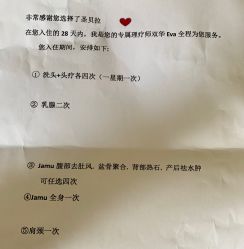 非常感谢您选择了圣贝拉
在您入住的 28 天内，我是您的专属理疗师双华 Eva 全程为您服务。
您入住期间，安排如下：
① 洗头+头疗各四次（一星期一次）
② 乳腺二次
③ Jamu 腹部去肚风，盆骨聚合，背部热石，产后祛水肿
可任选四次
④Jamu 全身一次
⑤肩颈一次